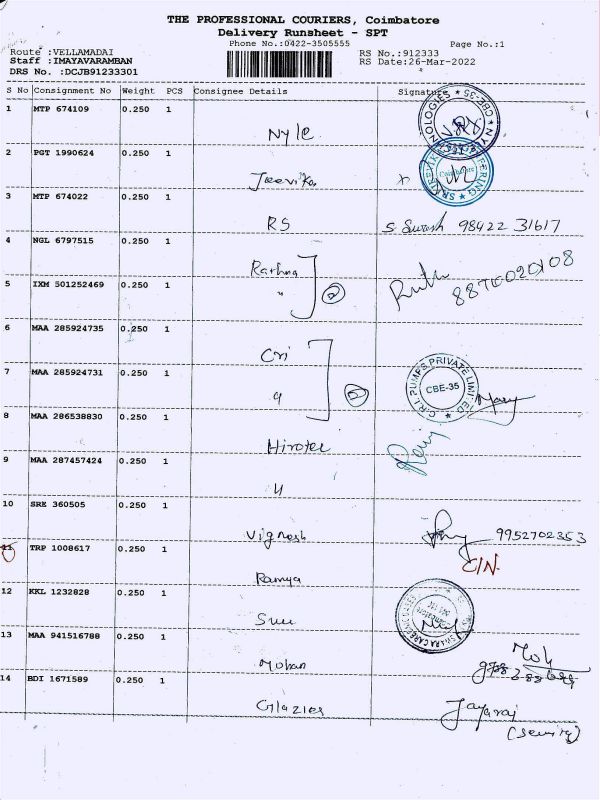 THE PROFESSIONAL COURIERS, Coimbatore
Delivery Runsheet - SPT
Phone No.:0422-3505555
Page No.:1
Route :VELLAMADAI
RS No.:912333
Staff :IMAYAVARAMBAN
RS Date:26-Mar-2022
DRS No. :DCJB91233301
S No Consignment No Weight PCS Consignee Details Signature
1 MTP 674109 0.250 1
Nyle
2 PGT 1990624 0.250 1
Jeevika
Coimbatore
3 MTP 674022 0.250 1
RS S Suresh 98422 31617
4 NGL 6797515 0.250 1
Rathna
5 IXM 501252469 0.250 1
" 2
6 MAA 285924735 0.250 1
Cri
7 MAA 285924731 0.250 1
C.R.I. PUMPS PRIVATE LIMITED
CBE-35
" 2 Mary
8 MAA 286538830 0.250 1
Hirotec
9 MAA 287457424 0.250 1
"
10 SRE 360505 0.250 1
Vignesh 9952702353
11 TRP 1008617 0.250 1
C/N
Ramya
12 KKL 1232828 0.250 1
Sree
13 MAA 941516788 0.250 1
Mohan
14 BDI 1671589 0.250 1
Glazier Jayaraj
(Security)